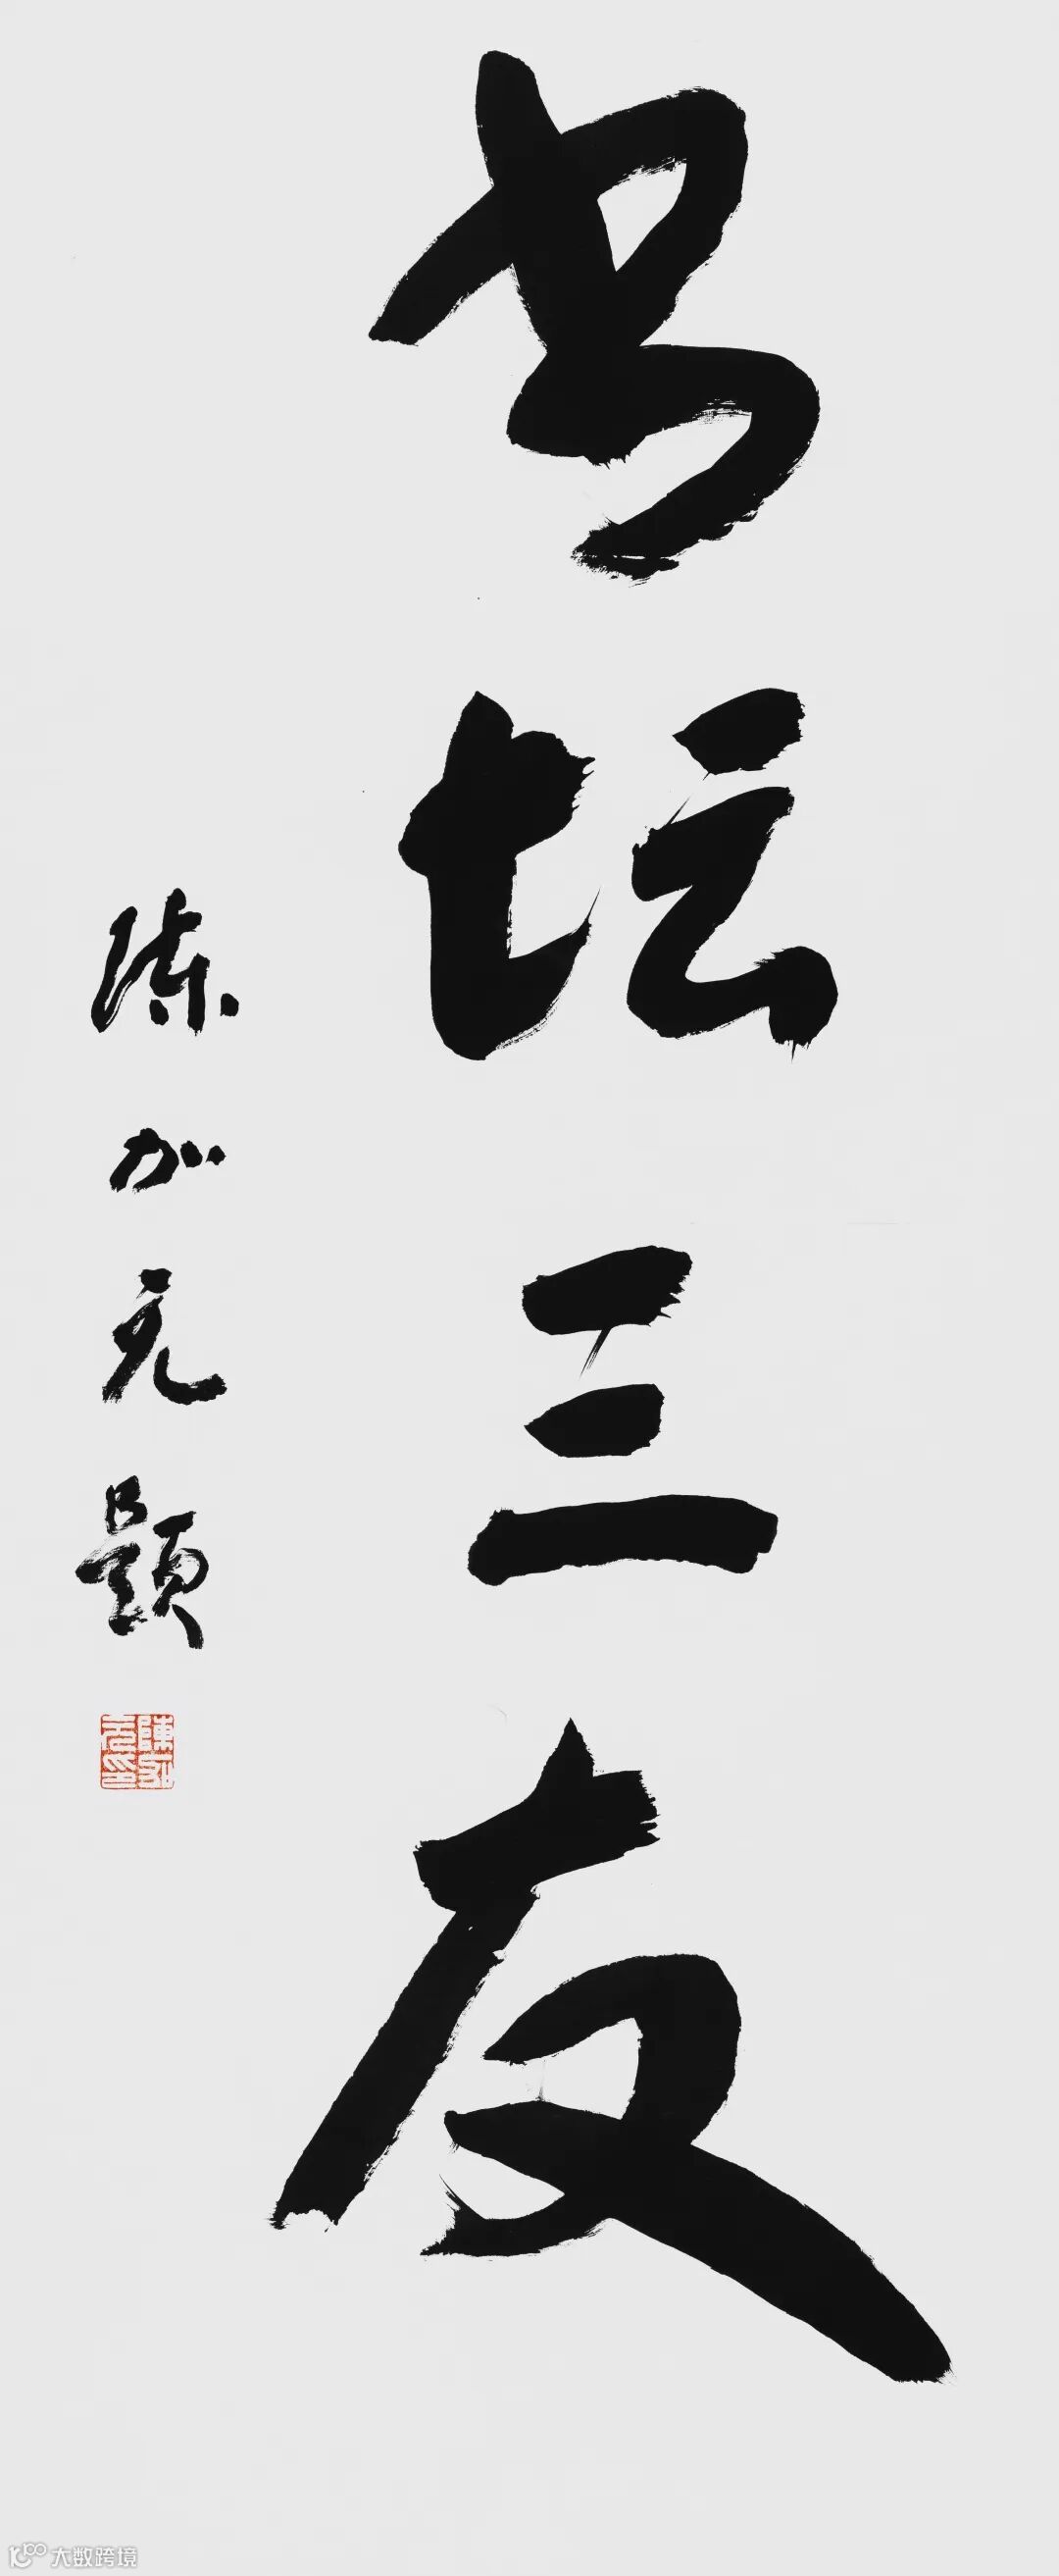 书坛三友
陈加元题
陳加元印
大数跨境